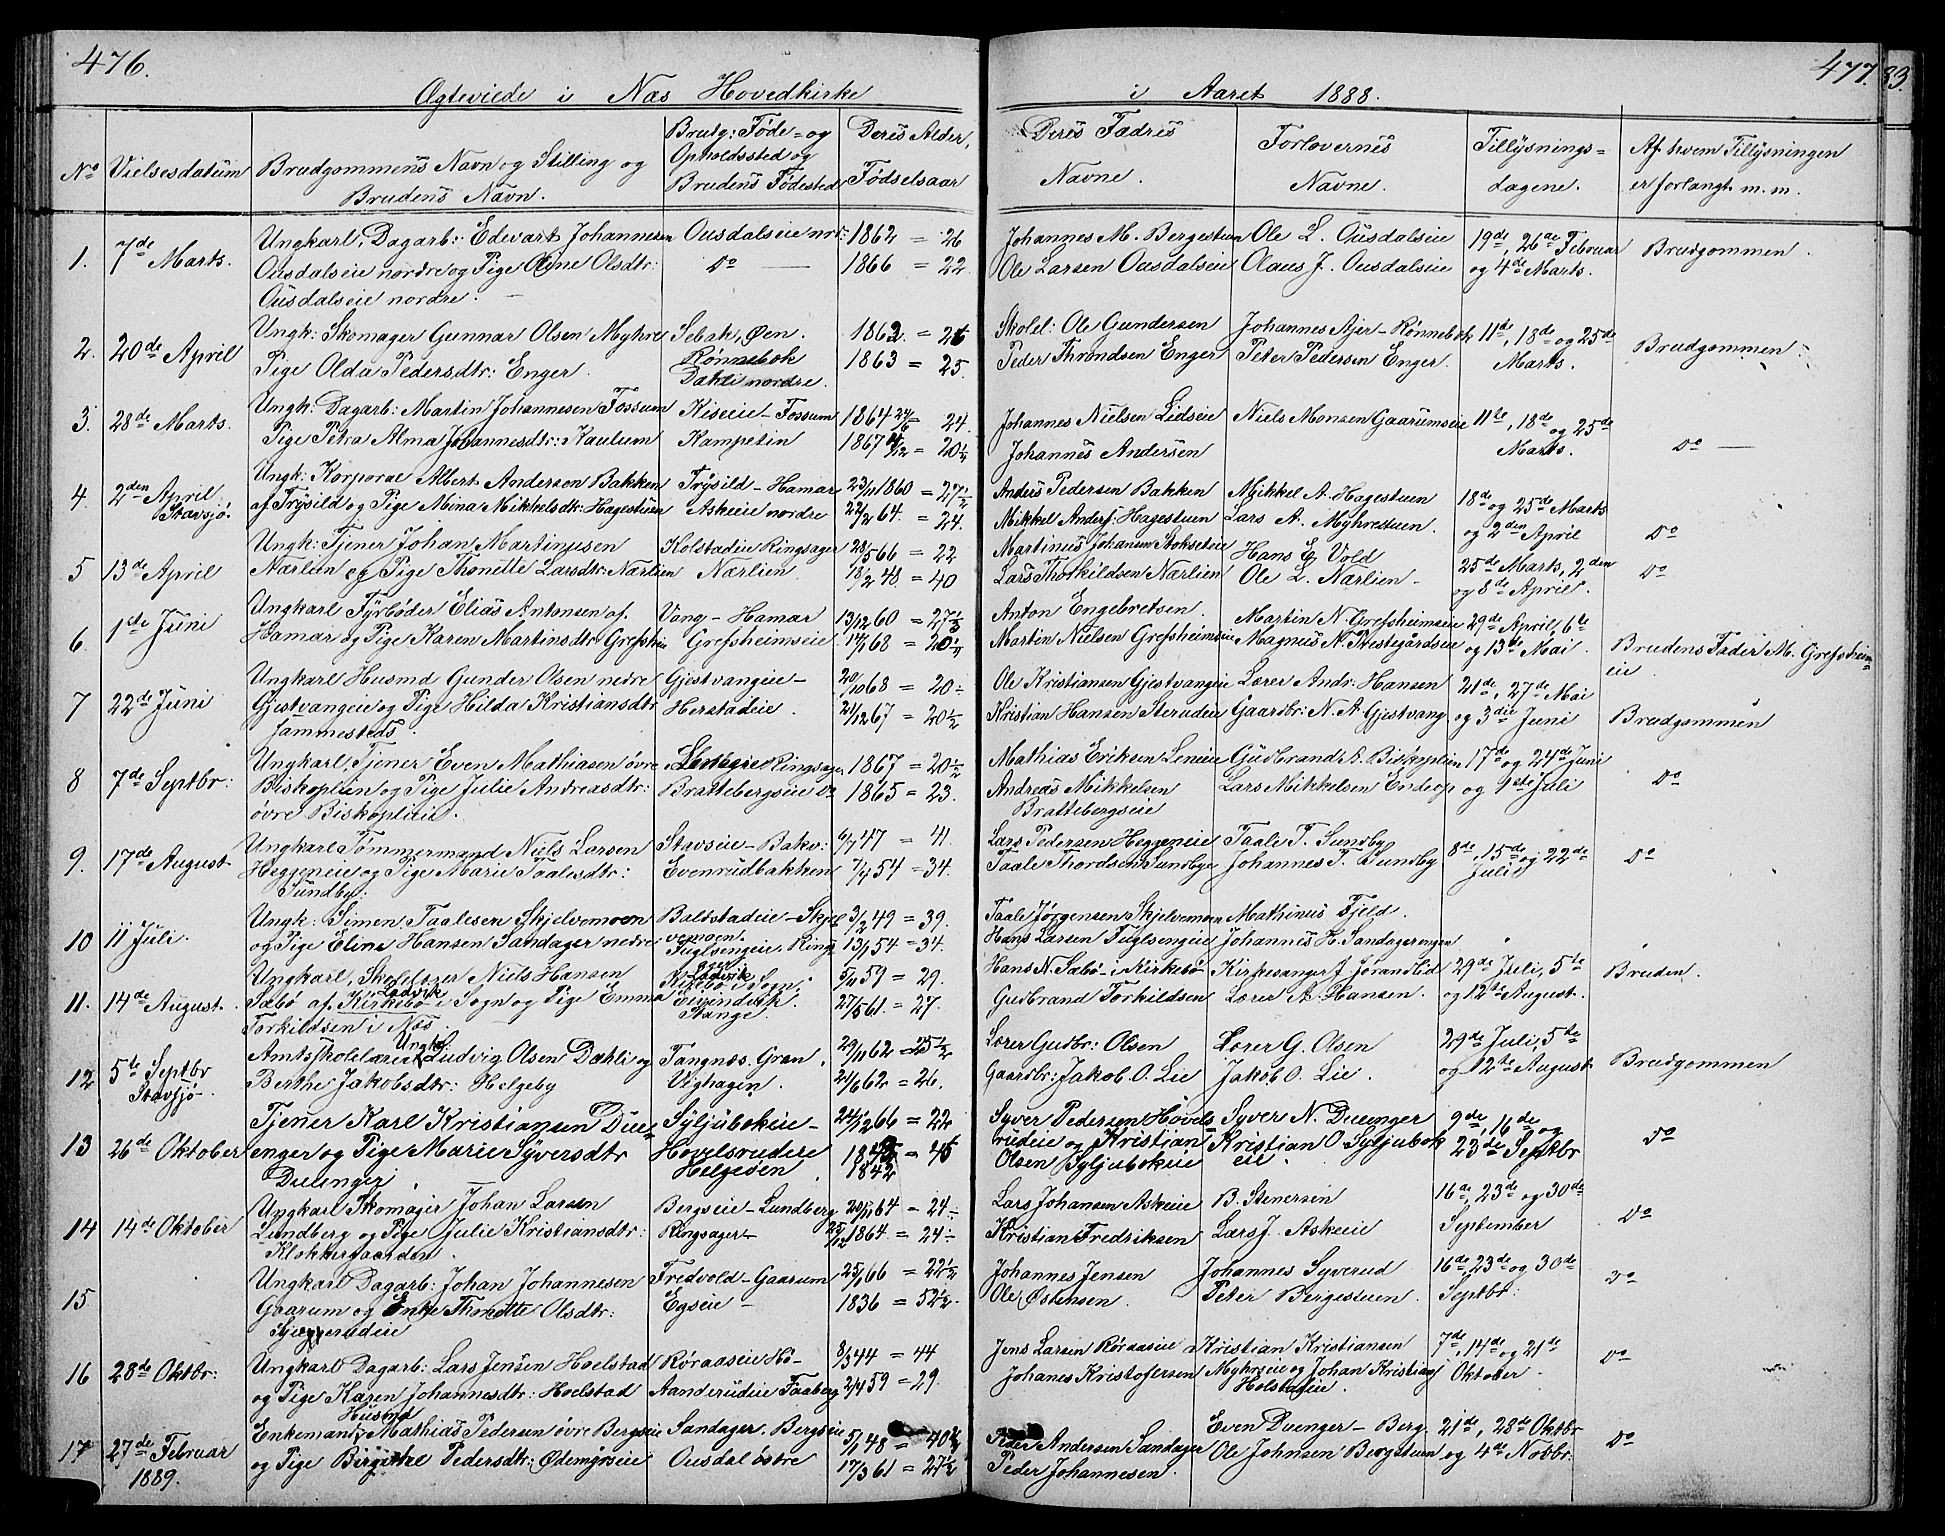 476.
Ægteviede i Næs Hovedkirke
No Vielsesdatum Brudgommens Navn og Stilling og Brudens Navn.
Brudg: Føde- og Opholdssted og Brudens Fødested
Deres Alder, Fødselsaar
1. 7de Marts. Ungkarl, Dagarb: Edevart Johannesen Ousdalseie nor: 1862 = 26
Ousdalseie nordre og Pige Agne Olsdtr: Do — 1866 = 22.
Ousdalseie nordre. —
2. 20de April Ungk: Skomager Gunnar Olsen Myhre Sebak, Øen. 1862 =
Rønnebok
Pige Olda Pedersdtr: Enger. Dæhli nordre. 1863 = 25.
3. 28de Marts. Ungk: Dagarb: Martin Johannesen Fossum Kiseie - Fossum 1864 24/6 = 24.
Pige Petra Alma Johannesdtr: Kaulum Kampetin 1867 = 20
4. 2den April Ungk: Korporal Albert Andersen Bakken Trysild - Hamar 23/11 1860 = 27 1/2
Stavsjø. af Trysild og Pige Mina Mikkelsdtr: Hagestuen Askeie nordre 64. = 24.
5 13de April Ungk: Tjener Johan Martinusen Kolstadeie Ringsager 28/5 66 = 22
Nærlien og Pige Thonette Larsdtr: Nærlien Nærlien. 18/2 48 = 40
6. 1ste Juni Ungkarl Fyrbøder Elias Antonsen af Vang - Hamar 13/12 60 = 27
Hamar og Pige Karen Martinsdtr: Grefshei Grefsheimseie. 68 = 20
7 22de Juni Ungkarl Husmd Gunder Olsen nedre Gjestvangeie - 20/10 68 = 20
Gjestvangeie og Pige Hilda Kristiansdtr Herstadeie. 21/12 67 = 20 1/2
sammesteds.
8 7de Septbr: Ungkarl, Tjener Even Mathiasen øvre Leneie Ringsager 1867 = 20 1/2
Biskoplien og Pige Julie Andreasdtr: Brattebergseie Do 1865 = 23.
øvre Biskoplien.
9. 17de August Ungkarl Tømmermand Niels Larsen Stavseie - Bakv: 6/7 47 = 41.
Heggeneie og Pige Marie Taalesdtr: Evenrudbakken 7/4 54 = 34.
Sundby.
10 11 Juli. Ungk: Simen Taalesen Skjelvemoen Baltstadeie - Skjel 3/2 49 = 39.
vemoen.
og Pige Eline Hansen Sandager nedre Fuglsengeie, Rings 13/1 54 = 34.
ager
11. 14de August. Ungkarl, Skolelærer Niels Hansen Ladvik i Sogn 5/11 59 = 29.
Sæbø af Kirkebø Ladvik i Sogn og Pige Emma Eivindvik 27/5 61. = 27.
Torkildsen i Næs Stange.
12 5te Septbr Amtsskolelærer Ungk: Ludvig Olsen Dæhli og Tangnæs, Gran 29/11 62 = 25 1/2
Stavsjø. Berthe Jakobsdtr: Helgeby Vighagen. 24/6 62 = 26.
13 26de Oktober Tjener Karl Kristiansen Due- Syljubokeie - 24/12 66 = 22
enger og Pige Marie Syversdtr Hovelsrudeie = 45
Duenger. Helgesen 1842
14 14de Oktober Ungkarl Skomager Johan Larsen Bergseie - Lundberg 20/11 64 = 24
Lundberg og Pige Julie Kristiansdtr: Ringsager - 25/12 1864 = 24
Klokkergaarden.
15 Ungkarl Dagarb: Johan Johannesen Fredvold - Gaarum 25/1 66 = 22 1/2
Gaarum og Enke Thonette Olsdtr: Egseie - 1836 = 52 1/2.
Sjuggerudeie
16 28de Oktbr: Ungkarl Dagarb: Lars Jensen Hoelstad Røraaseie Hø- 8/3 44 = 44
og Pige Karen Johannesdtr: Hoelstad Aanderudeie Faaberg 2/4 59 = 29.
17 27de Februar Enkemand, Husmd Mathias Pedersen øvre Bergseie Sandager. Bergseie 5/1 48 = 40
1889. og Pige Birgitte Pedersdtr: Ødemyrseie Ousdal østre 17/3 61 = 27 1/2
477. 33.
i Aaret 1888.
Deres Fædres Navne.
Forlovernes Navne.
Tillysnings- dagene.
Af hvem Tillysningen er forlangt m. m.
Johannes M. Bergestuen Ole L. Ousdalseie 19de, 26de Februar Brudgommen.
Ole Larsen Ousdalseie Claus J. Ousdalseie og 4de Marts.
Skolel: Ole Gundersen Johannes Ajer - Rønnebok 11te, 18de og 25de Brudgommen.
Peder Throndsen Enger Peter Pedersen Enger. Marts.
Johannes Nielsen Lidseie Niels Monsen Gaarumseie 11te, 18de og 25de
Johannes Andersen Marts. Do —
Anders Pedersen Bakken Mikkel A. Hagestuen 18de og 25de Marts
Mikkel Anders: Hagestuen Lars A. Myhrestuen. og 2den April Do
Martinus Johansen Stokseteie Hans E. Vold 25de Marts, 2den
Lars Thorkildsen Nærlien Ole L. Nærlien - og 8de April. Do
Anton Engebretsen. Martin N. Grefsheimseie 29de April, 6te
Martin Nielsen Grefsheimseie Magnus N. Prestegårdseie og 13de Mai. Brudens Fader M. Grefsheim-
eie
Ole Kristiansen Gjestvangeie Lærer Andr: Hansen 21de, 27de Mai
Kristian Hansen Sterudeie Gaardbr: N. A. Gjestvang og 3die Juni Brudgommen
Mathias Eriksen Leneie Gudbrand A. Biskoplien 17de og 24de Juni
Andreas Mikkelsen Lars Mikkelsen Enderop og 1ste Juli Do
Brattebergseie
Lars Pedersen Heggeneie Taale T. Sundby 8de, 15de og 22de Do
Taale Thordsen Sundby Johannes T. Sundby Juli
Taale Jørgensen Skjelvemoen Mathinus Fjeld.
Hans Larsen Fuglsengeie Johannes H. Sandagerengen " "
Hans N. Sæbø - i Kirkebø Kirkesanger J. Jørandlid 29de Juli, 5te Bruden.
Gudbrand Torkildsen Lærer A. Hansen. og 12te August.
Lærer Gudbr: Olsen Lærer G. Olsen 29de Juli, 5te
Gaardbr: Jakob O. Lie Jakob O. Lie. og 12te August Brudgommen
Syver Pedersen Hovels- Syver N. Duenger 9de, 16de og
rudeie og Kristian Kristian O. Syljubok 23de Septbr Do
Olsen Syljubokeie eie.
Lars Johansen Askeie B. Stenersen 16de, 23de og 30de
Kristian Fredriksen Lars J. Askeie September Do
Johannes Jensen Johannes Syverud 16de, 23de og 30de Do
Ole Østensen. Peter Bergestuen. Septbr:
Jens Larsen Røraaseie Kristian Kristiansen 7de, 14de og 21de Do
Johanes Kristofersen Myhrseie og Johan Kristians Oktober.
Holstadeie.
Peder Andersen Sandager Even Duenger - Berg. 21de, 28de Oktbr Do
Peder Johannesen. Ole Johnsen Bergstuen og 4de Novbr: